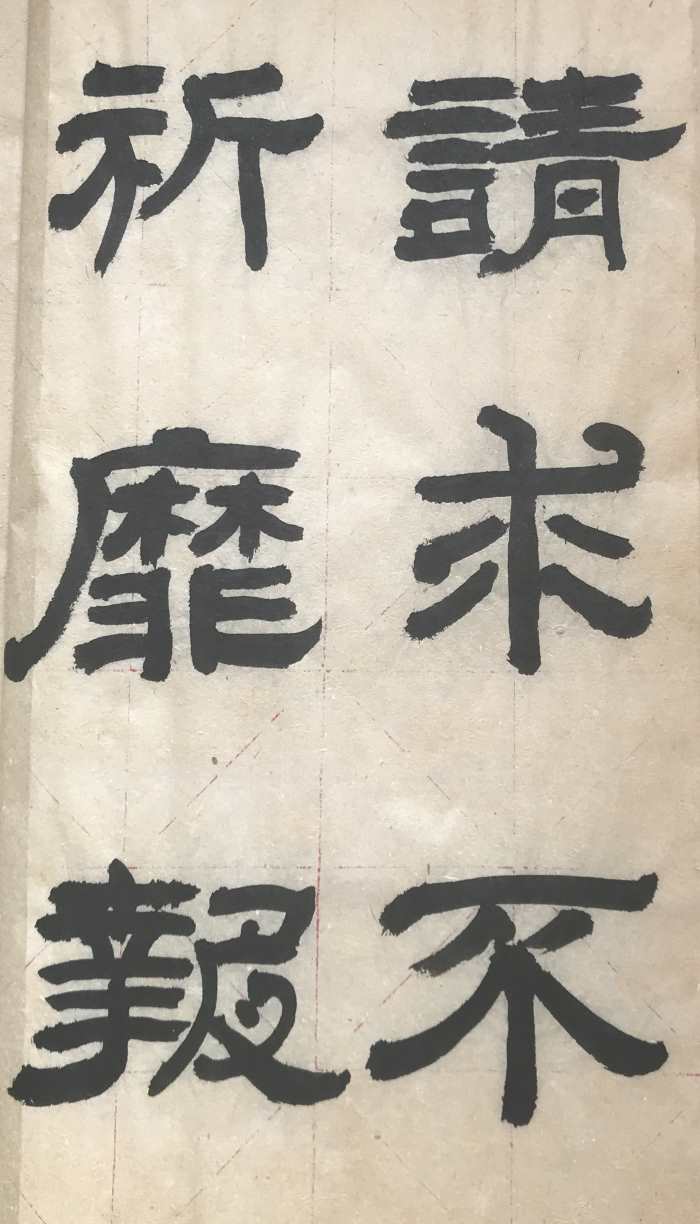 請求不
祈靡報